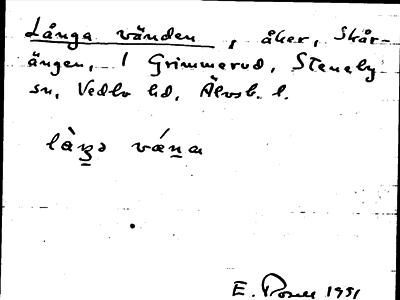 Långa vänden, åker, Skår-
ängen, 1 Grimmerud, Steneby
sn, Vedbo hd, Älvsb. l.
là̀ŋə vǽna
E. 1951